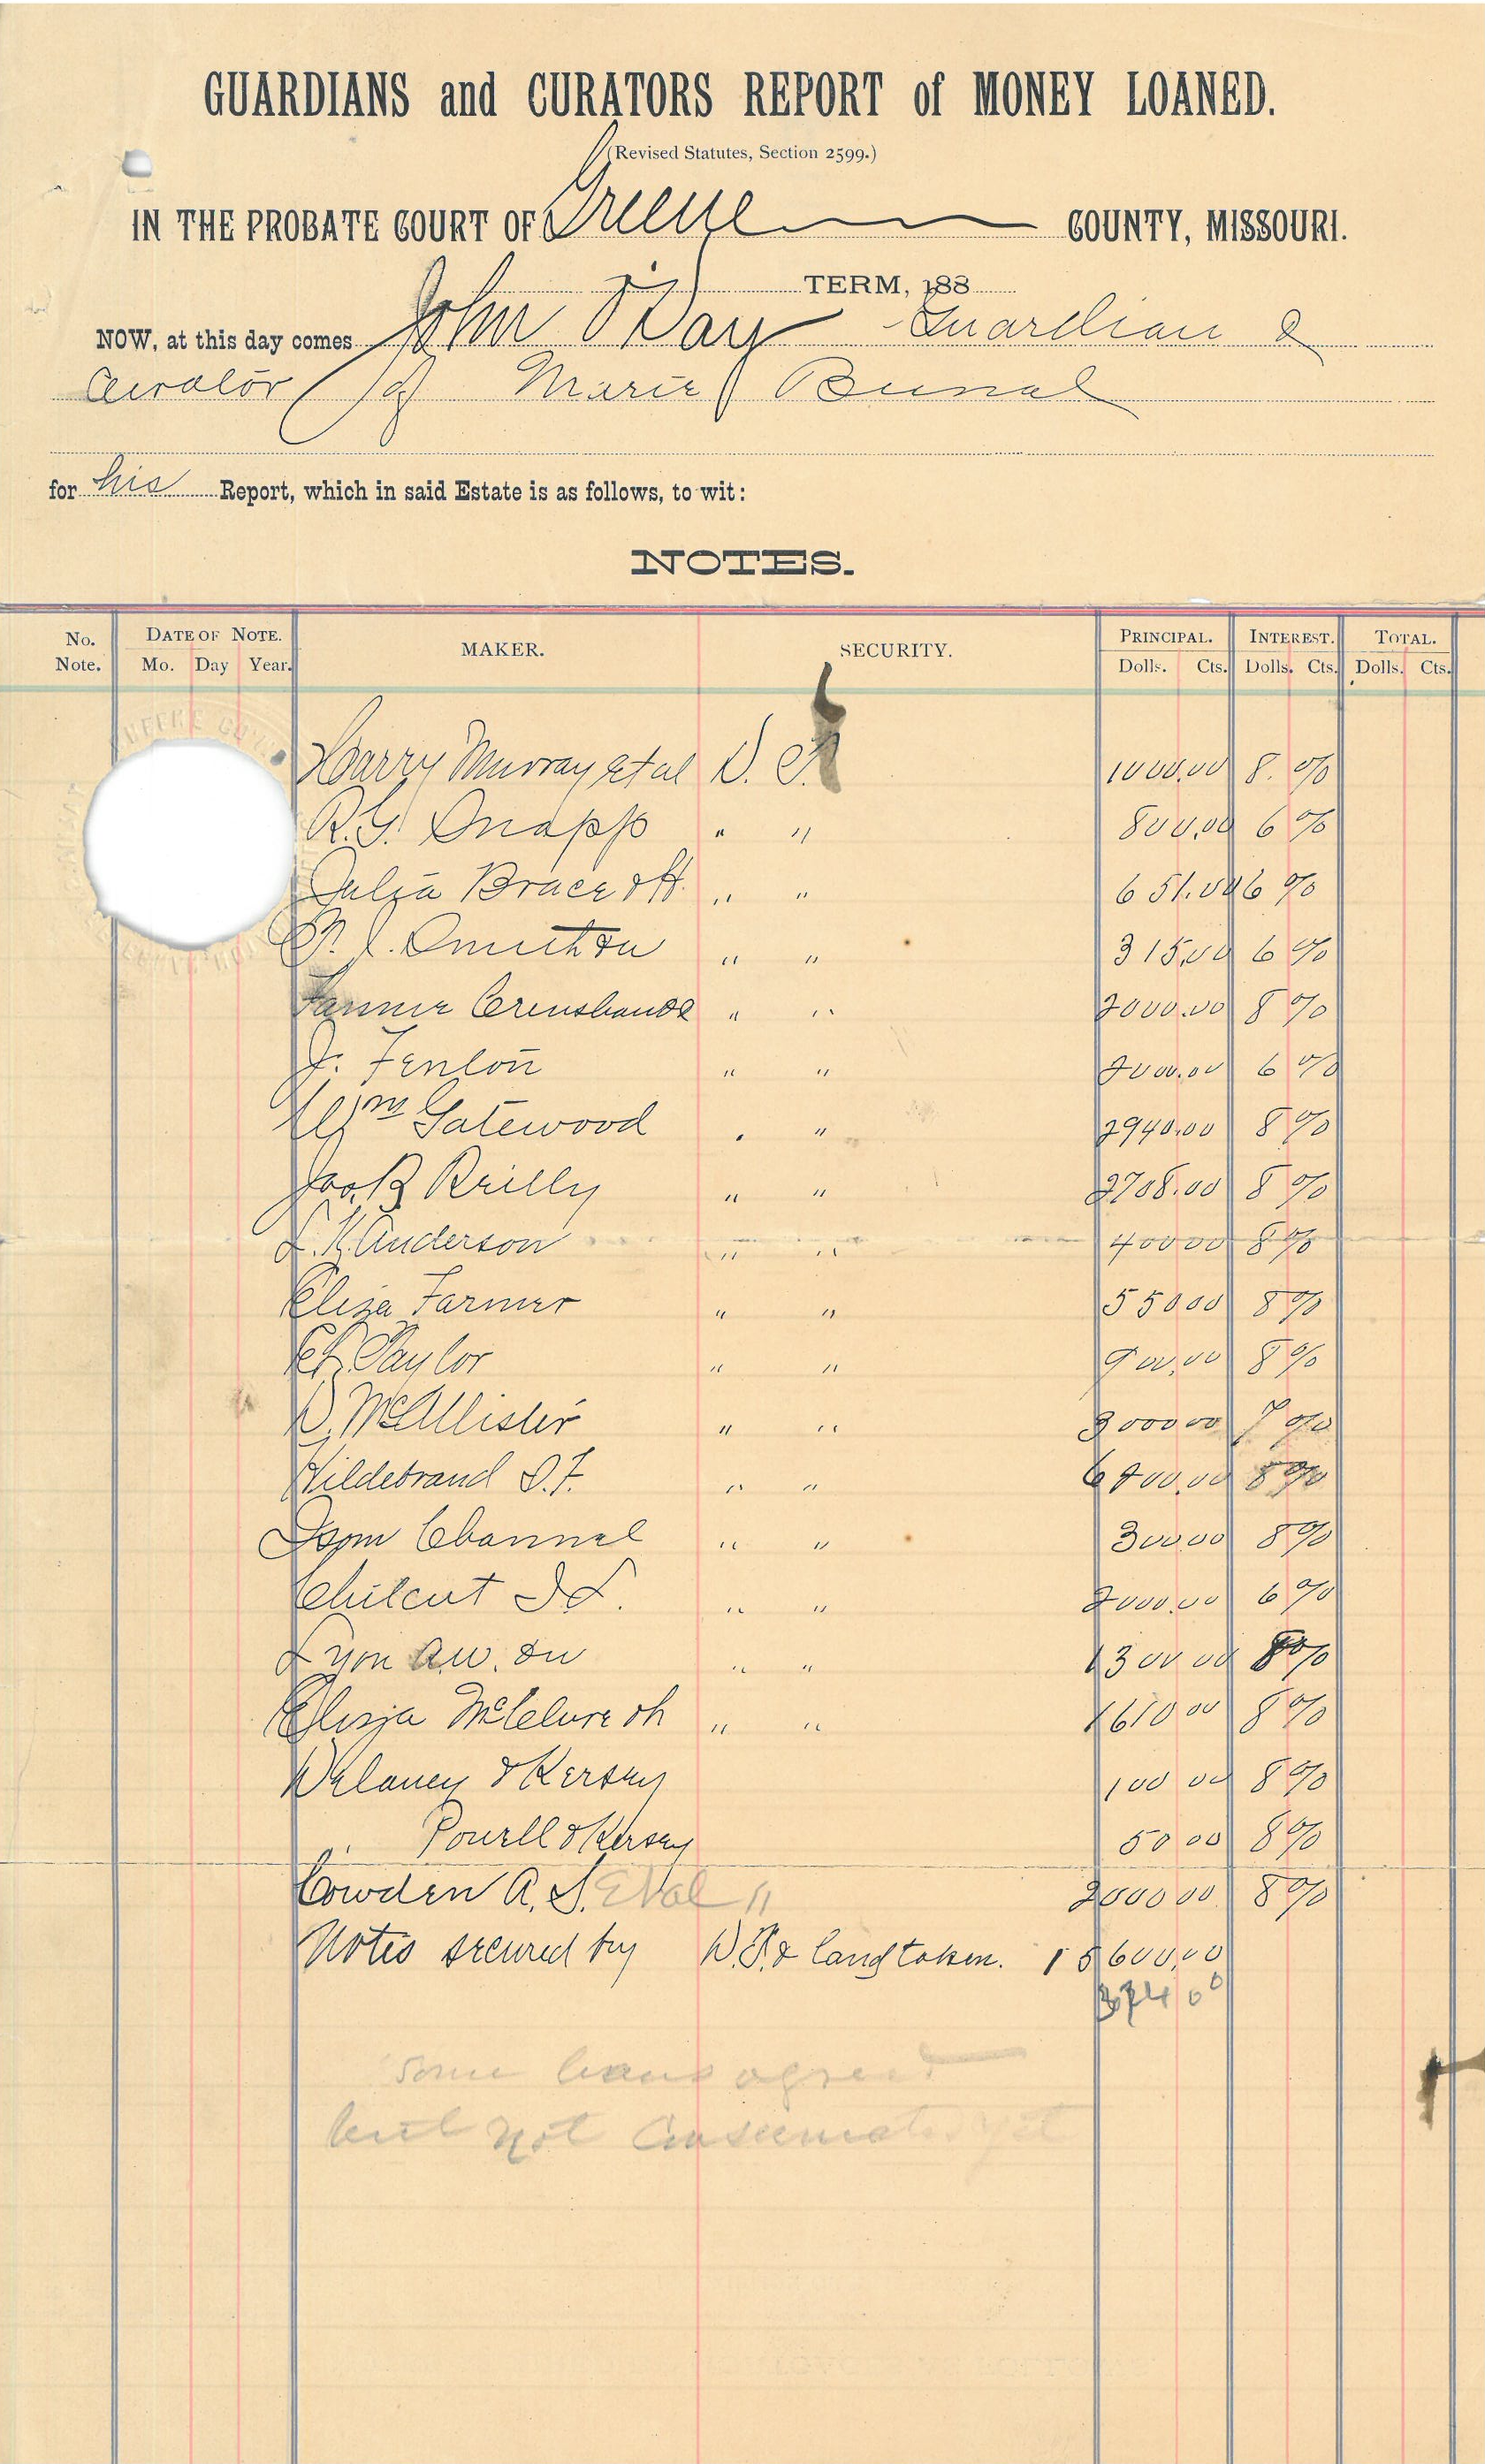 GUARDIANS and CURATORS REPORT of MONEY LOANED.
(Revised Statutes, Section 2599.)
IN THE PROBATE COURT OF Greene COUNTY, MISSOURI.
TERM, 188
NOW, at this day comes John O'Day Guardian &
Curator of Marie
for his Report, which in said Estate is as follows, to wit:
NOTES.
No. Note. DATE OF NOTE. Mo. Day Year. MAKER. SECURITY. PRINCIPAL. Dolls. Cts. INTEREST. Dolls. Cts. TOTAL. Dolls. Cts.
Harry Murray et al D. T. 1000.00 8. %
R.G. Snapp " " 800.00 6 %
Julia Brace & H. " " 651.00 6 %
Smith " " 315.00 6 %
Fannie " " 2000.00 8 %
J. Fenlon " " 2000.00 6 %
Wm Gatewood " " 2940.00 8 %
Jas. B Reilly " " 2708.00 8 %
L. K. Anderson " " 400 00 8 %
Eliza Farmer " " 550 00 8 %
Taylor " " 900.00 8 %
D. McAllister " " 3000 00 7 %
Hildebrand " " 00.00 8 %
Isom Channel " " 300.00 8 %
Chilcut " " 2000.00 6 %
Lyon A.W. " " 1300 00 8 %
McClure " " 1610 00 8 %
Delaney & Kersey 100 00 8 %
" Powell & Kersey 50 00 8 %
Cowden A. S. " 2000 00 8 %
Notes secured by D.T. & land taken. 15600.00
some loans agreed
but not yet